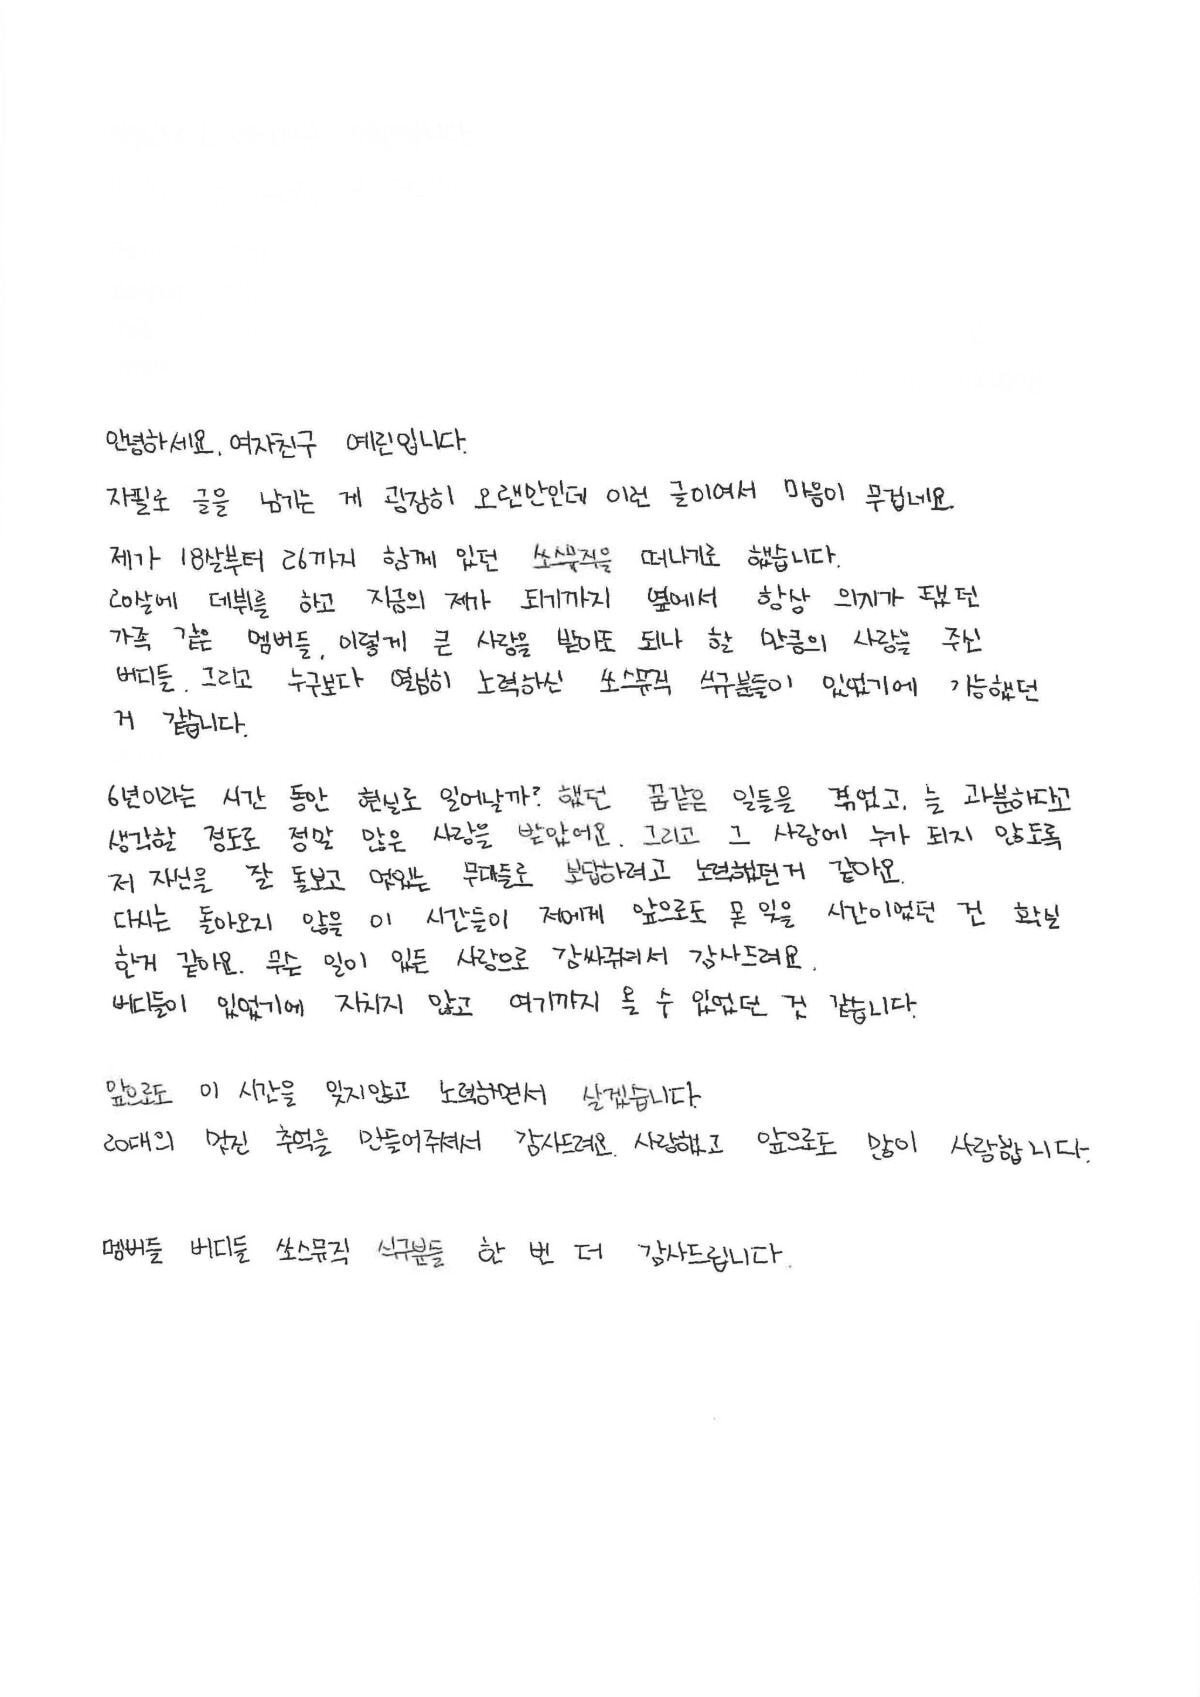 안녕하세요. 여자친구 예린입니다.
자필로 글을 남기는 게 굉장히 오랜만인데 이런 글이여서 마음이 무겁네요.
제가 18살부터 26까지 함께 있던 쏘스뮤직을 떠나기로 했습니다.
20살에 데뷔를 하고 지금의 제가 되기까지 옆에서 항상 의지가 됐던
가족 같은 멤버들, 이렇게 큰 사랑을 받아도 되나 할 만큼의 사랑을 주신
버디들. 그리고 누구보다 열심히 노력하신 쏘스뮤직 식구분들이 있었기에 가능했던
거 같습니다.
6년이라는 시간 동안 현실로 일어날까? 했던 꿈같은 일들을 겪었고, 늘 과분하다고
생각할 정도로 정말 많은 사랑을 받았어요. 그리고 그 사랑에 누가 되지 않도록
저 자신을 잘 돌보고 멋있는 무대들로 보답하려고 노력했던거 같아요.
다시는 돌아오지 않을 이 시간들이 저에게 앞으로도 못 잊을 시간이었던 건 확실
한거 같아요. 무슨 일이 있든 사랑으로 감싸줘서 감사드려요.
버디들이 있었기에 지치지 않고 여기까지 올 수 있었던 것 같습니다.
앞으로도 이 시간을 잊지않고 노력하면서 살겠습니다.
20대의 멋진 추억을 만들어주셔서 감사드려요. 사랑했고 앞으로도 많이 사랑합니다.
멤버들 버디들 쏘스뮤직 식구분들 한 번 더 감사드립니다.